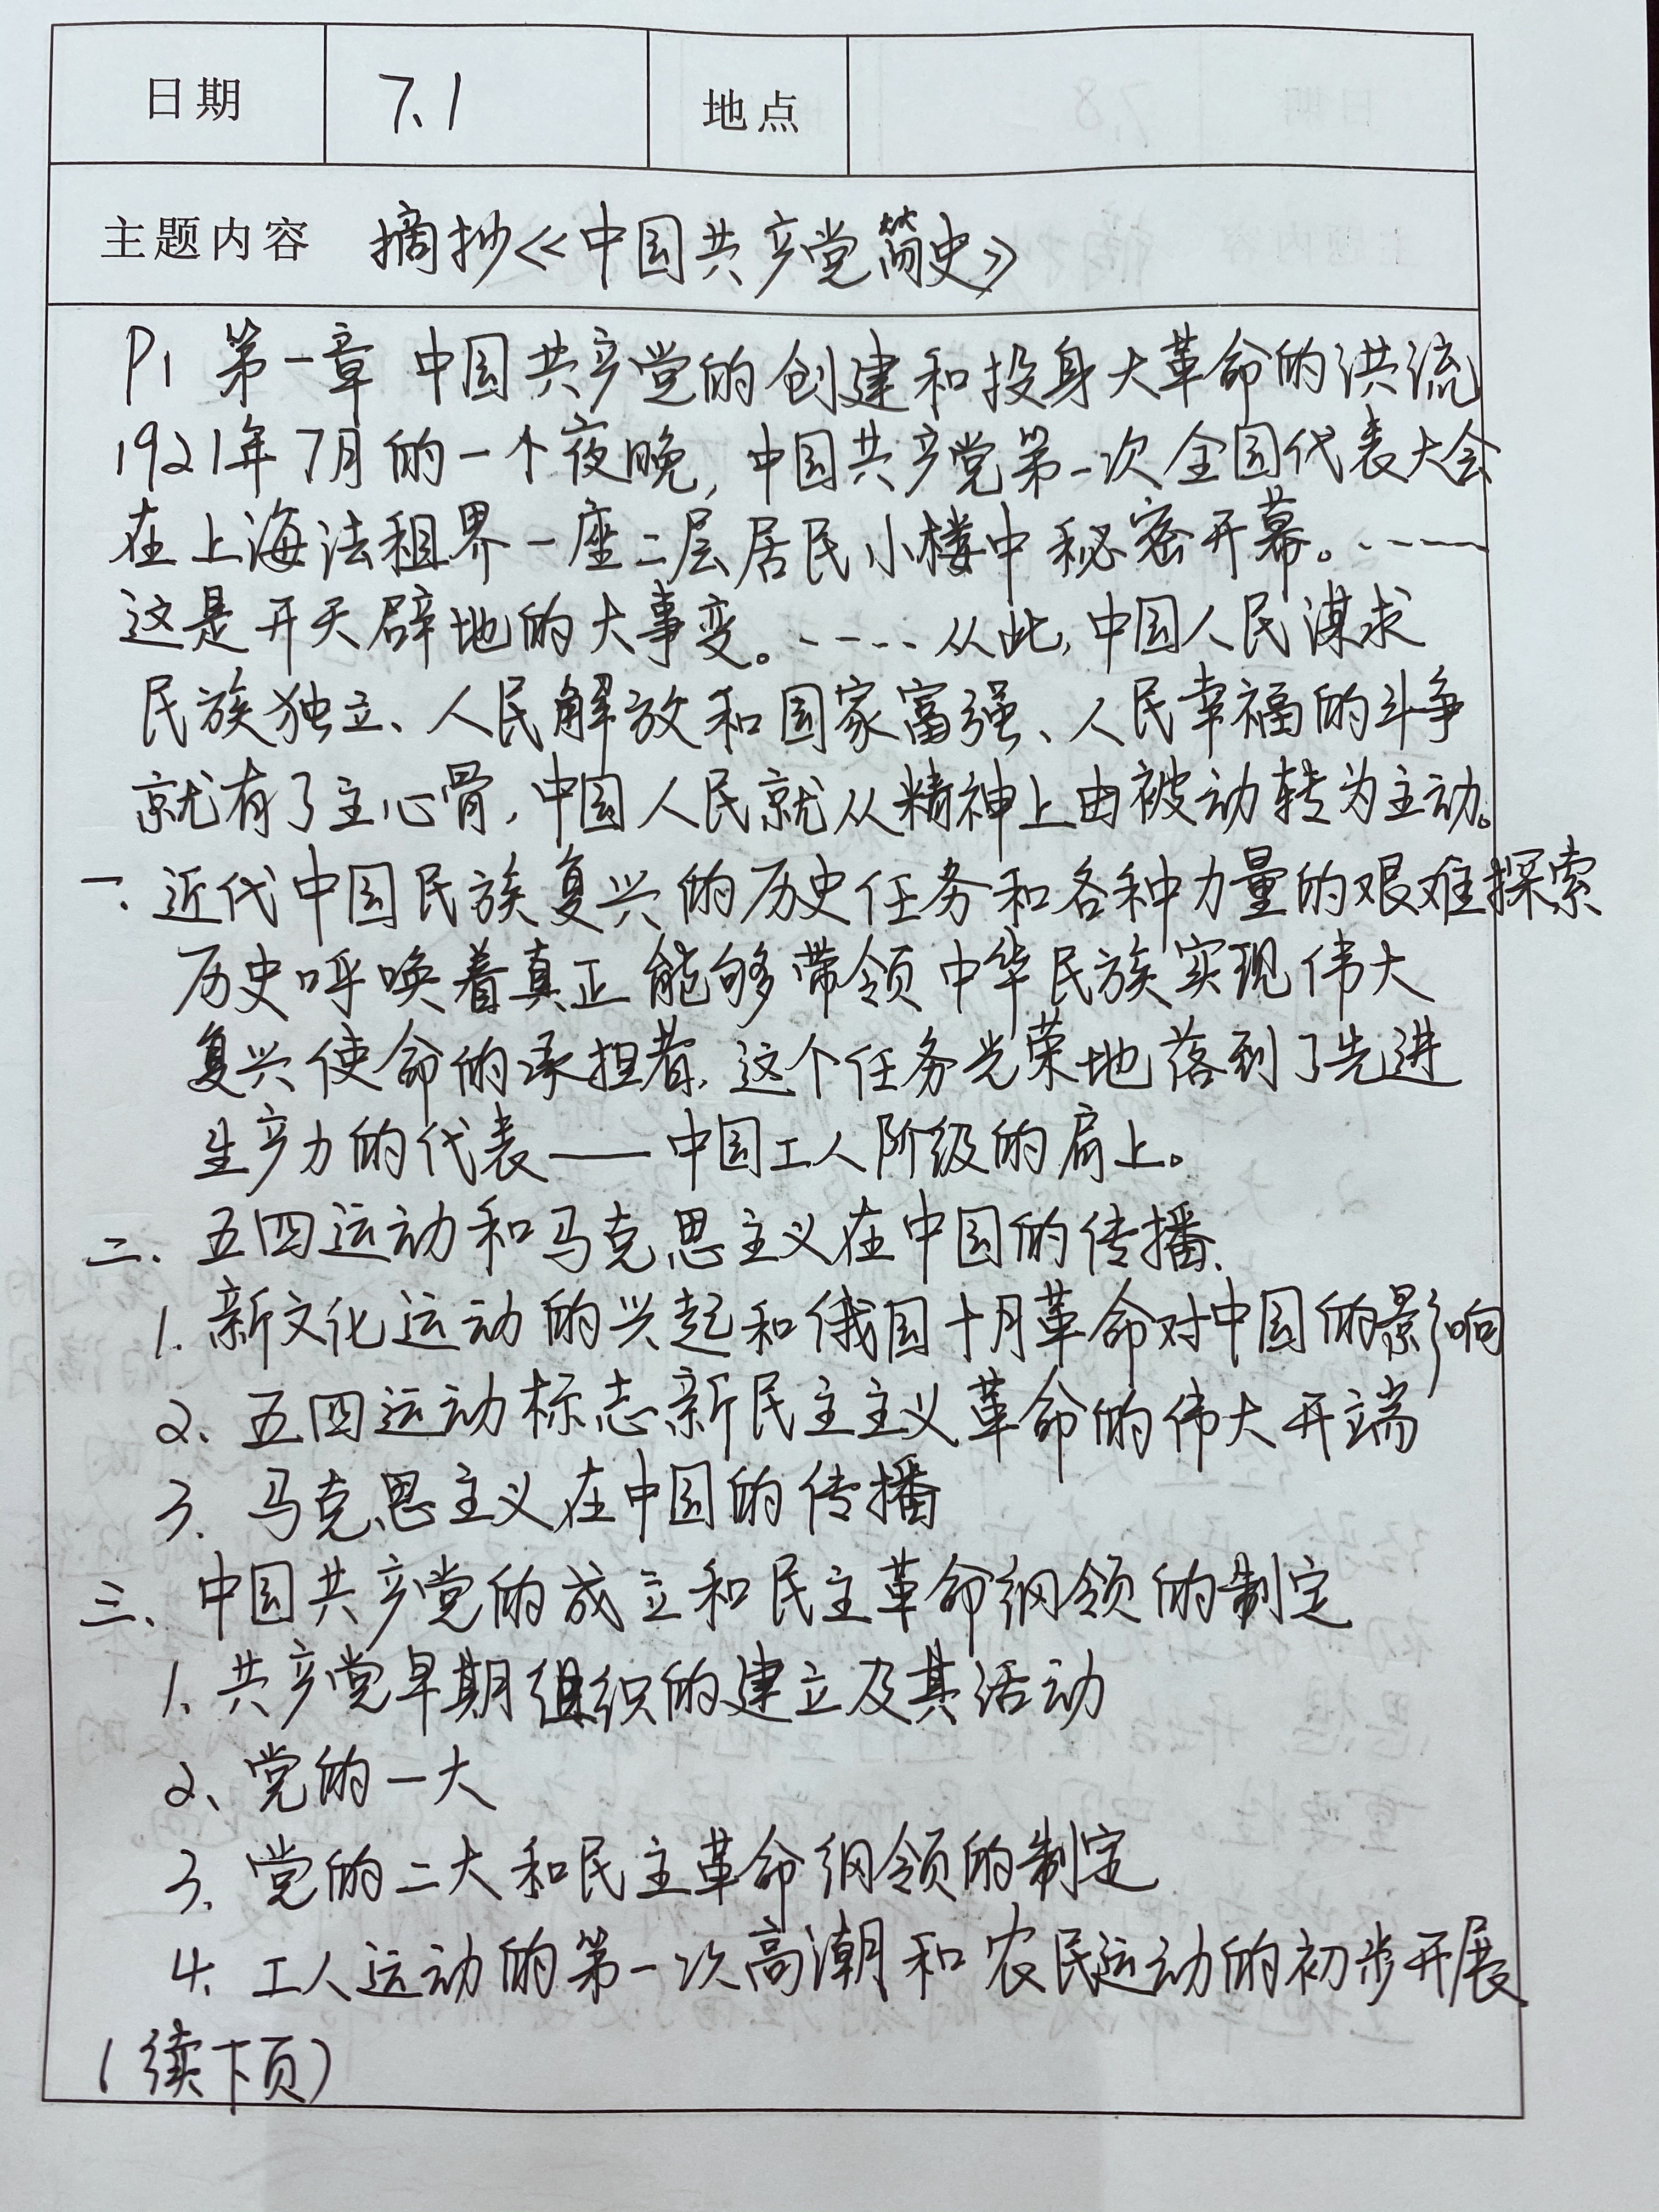 日期 7.1 地点
主题内容 摘抄《中国共产党简史》
P1 第一章 中国共产党的创建和投身大革命的洪流
1921年7月的一个夜晚，中国共产党第一次全国代表大会
在上海法租界一座二层居民小楼中秘密开幕。……
这是开天辟地的大事变。……从此，中国人民谋求
民族独立、人民解放和国家富强、人民幸福的斗争
就有了主心骨，中国人民就从精神上由被动转为主动。
一、近代中国民族复兴的历史任务和各种力量的艰难探索
历史呼唤着真正能够带领中华民族实现伟大
复兴使命的承担者，这个任务光荣地落到了先进
生产力的代表——中国工人阶级的肩上。
二、五四运动和马克思主义在中国的传播.
1. 新文化运动的兴起和俄国十月革命对中国的影响
2、五四运动标志新民主主义革命的伟大开端
3、马克思主义在中国的传播
三、中国共产党的成立和民主革命纲领的制定
1、共产党早期组织的建立及其活动
2、党的一大
3、党的二大和民主革命纲领的制定
4、工人运动的第一次高潮和农民运动的初步开展
（续下页）